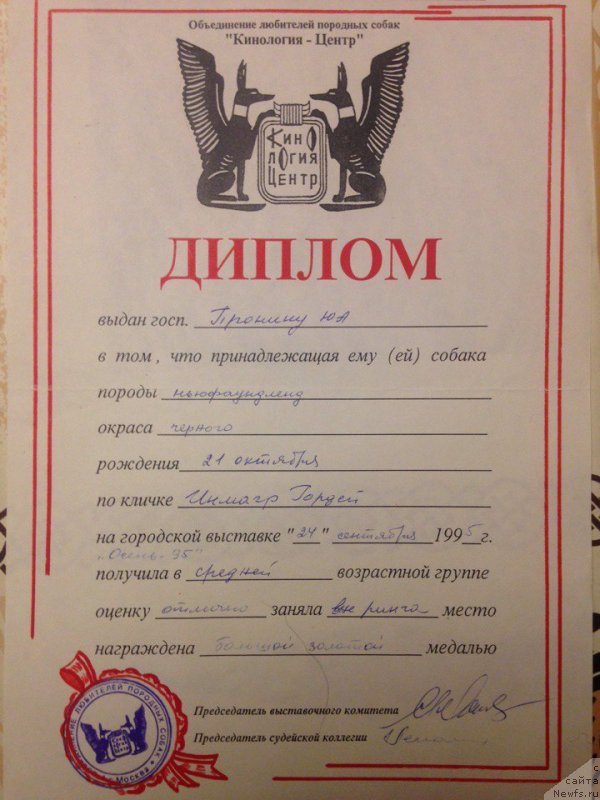 Объединение любителей породных собак
"Кинология - Центр"
Кино
логия
Центр
ДИПЛОМ
выдан госп. Пронину ЮА
в том, что принадлежащая ему (ей) собака
породы ньюфаундленд
окраса черного
рождения 21 октября
по кличке Инмагр Гордей
на городской выставке "24" сентября 1995 г.
"Осень-95"
получила в средней возрастной группе
оценку отлично заняла вне ринга место
награждена большой золотой медалью
Председатель выставочного комитета
Председатель судейской коллегии
ЛЮБИТЕЛЕЙ ПОРОДНЫХ СОБАК
Москва
с
сайта
Newfs.ru